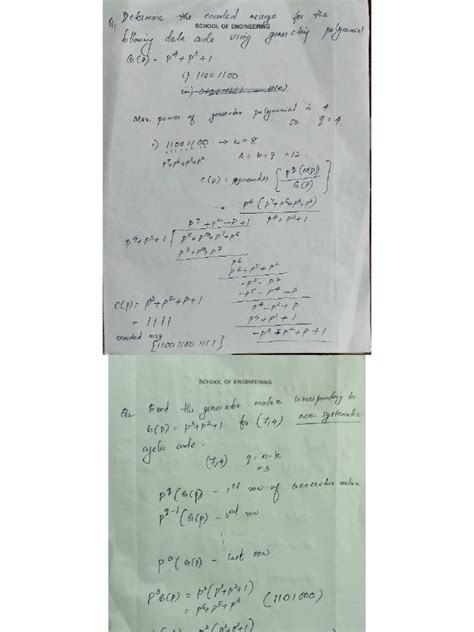 Q1 Determine the encoded message for the
SCHOOL OF ENGINEERING
following data code using generating polynomial
G(p) = p⁴ + p³ + 1
i) 11001100.
Max. power of generator polynomial is 4
so q = 4
i) 11001100 → k = 8
p⁷+p⁶+p³+p² n = k+q = 12
c(p) = remainder [p^q (M(p)) / G(p)]
= p⁴ (p⁷+p⁶+p³+p²)
p⁴+p³+1
p⁴+p³+1
p¹¹+p¹⁰+p⁷+p⁶
p⁶
p⁶+p⁵+p²
-p⁵-p²
-p⁵-p⁴-p
p⁴-p²+p
p⁴+p³+1
c(p) = p³+p²+p+1
-p³-p²+p+1
= 1111
encoded msg
[110011001111]
SCHOOL OF ENGINEERING
Q2 Find the generator matrix corresponding to
G(p) = p³+p²+1 for (7,4) non-systematic
cyclic code.
(7,4) q = n-k
=3
p^q (G(p) - 1st row of Generator matrix
p^q-1 (G(p) - 2nd row
p⁰ (G(p) - last row
p³G(p) = p³(p³+p²+1)
= p⁶+p⁵+p³ (1101000)